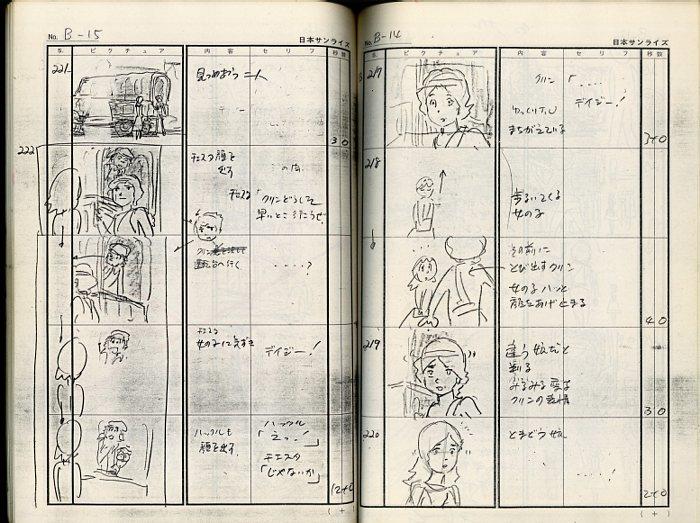 No. B-14
日本サンライズ
S. ピクチュア 内容 セリフ 秒数
217
クリン「‥‥
デイジー!
まちがえている
3+0
218
歩いてくる
女の子
その前に
とび出すクリン
女の子ハッと
顔をあげ止まる
4 0
219
違う娘だと
判る
みるみる変る
クリンの表情
3 0
220
とまどう娘
2+0
( + )
No. B-15
日本サンライズ
S. ピクチュア 内容 セリフ 秒数
221
見つめあう二人
3 0
222
チェスタ顔を
出す
チェスタ
「クリンどうした
早いとこ行こうぜ
クリン
運転台へ行く
‥‥?
チェスタ
女の子に気ずき
デイジー!
ハックルも
顔を出す
ハックル
「えっ!」
チェスタ
「じゃないか」
12+0
( + )